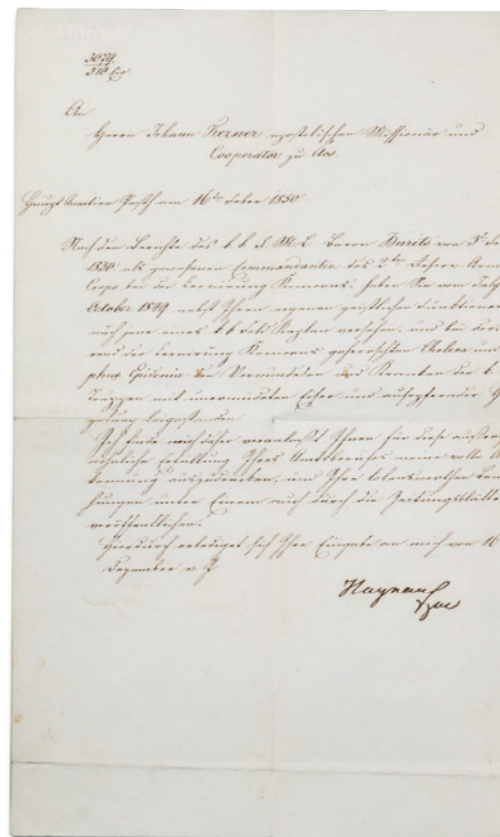 5079.
An
Herrn Johann Kerner apostolischen Missionär und
Cooperator zu Acs.
Haupt Quartier Pesth am 16ten Feber 1850
Nach dem Berichte des k k F. M. L. Baron Burits von 3t
1850 als gewesenen Commandanten des 2ten Reserve Armee
Corps bei der Cernierung Komorns, haben Sie vom
October 1849 nebst Ihren eigenen geistlichen Funktionen
auch jene eines k k Feld Kaplan versehen, und bei der
rend der Cernierung Komorns geherrschten Cholera und
phus Epidemie den Verwundeten und Kranken der k
Truppen mit unermüdeten Eifer und aufopfernder
beigestanden
Ich finde mich daher veranlaßt Ihnen für diese außer
wöhnliche Erfüllung Ihres Amtsberufes meine volle
kennung auszudrücken, und Ihre lobenswerthen Bem
hungen unter Einem auch durch die Zeitungsblätter
veröffentlichen.
Hierdurch erlediget sich Ihre Eingabe an mich von 16
Dezember v. J.
Haynau